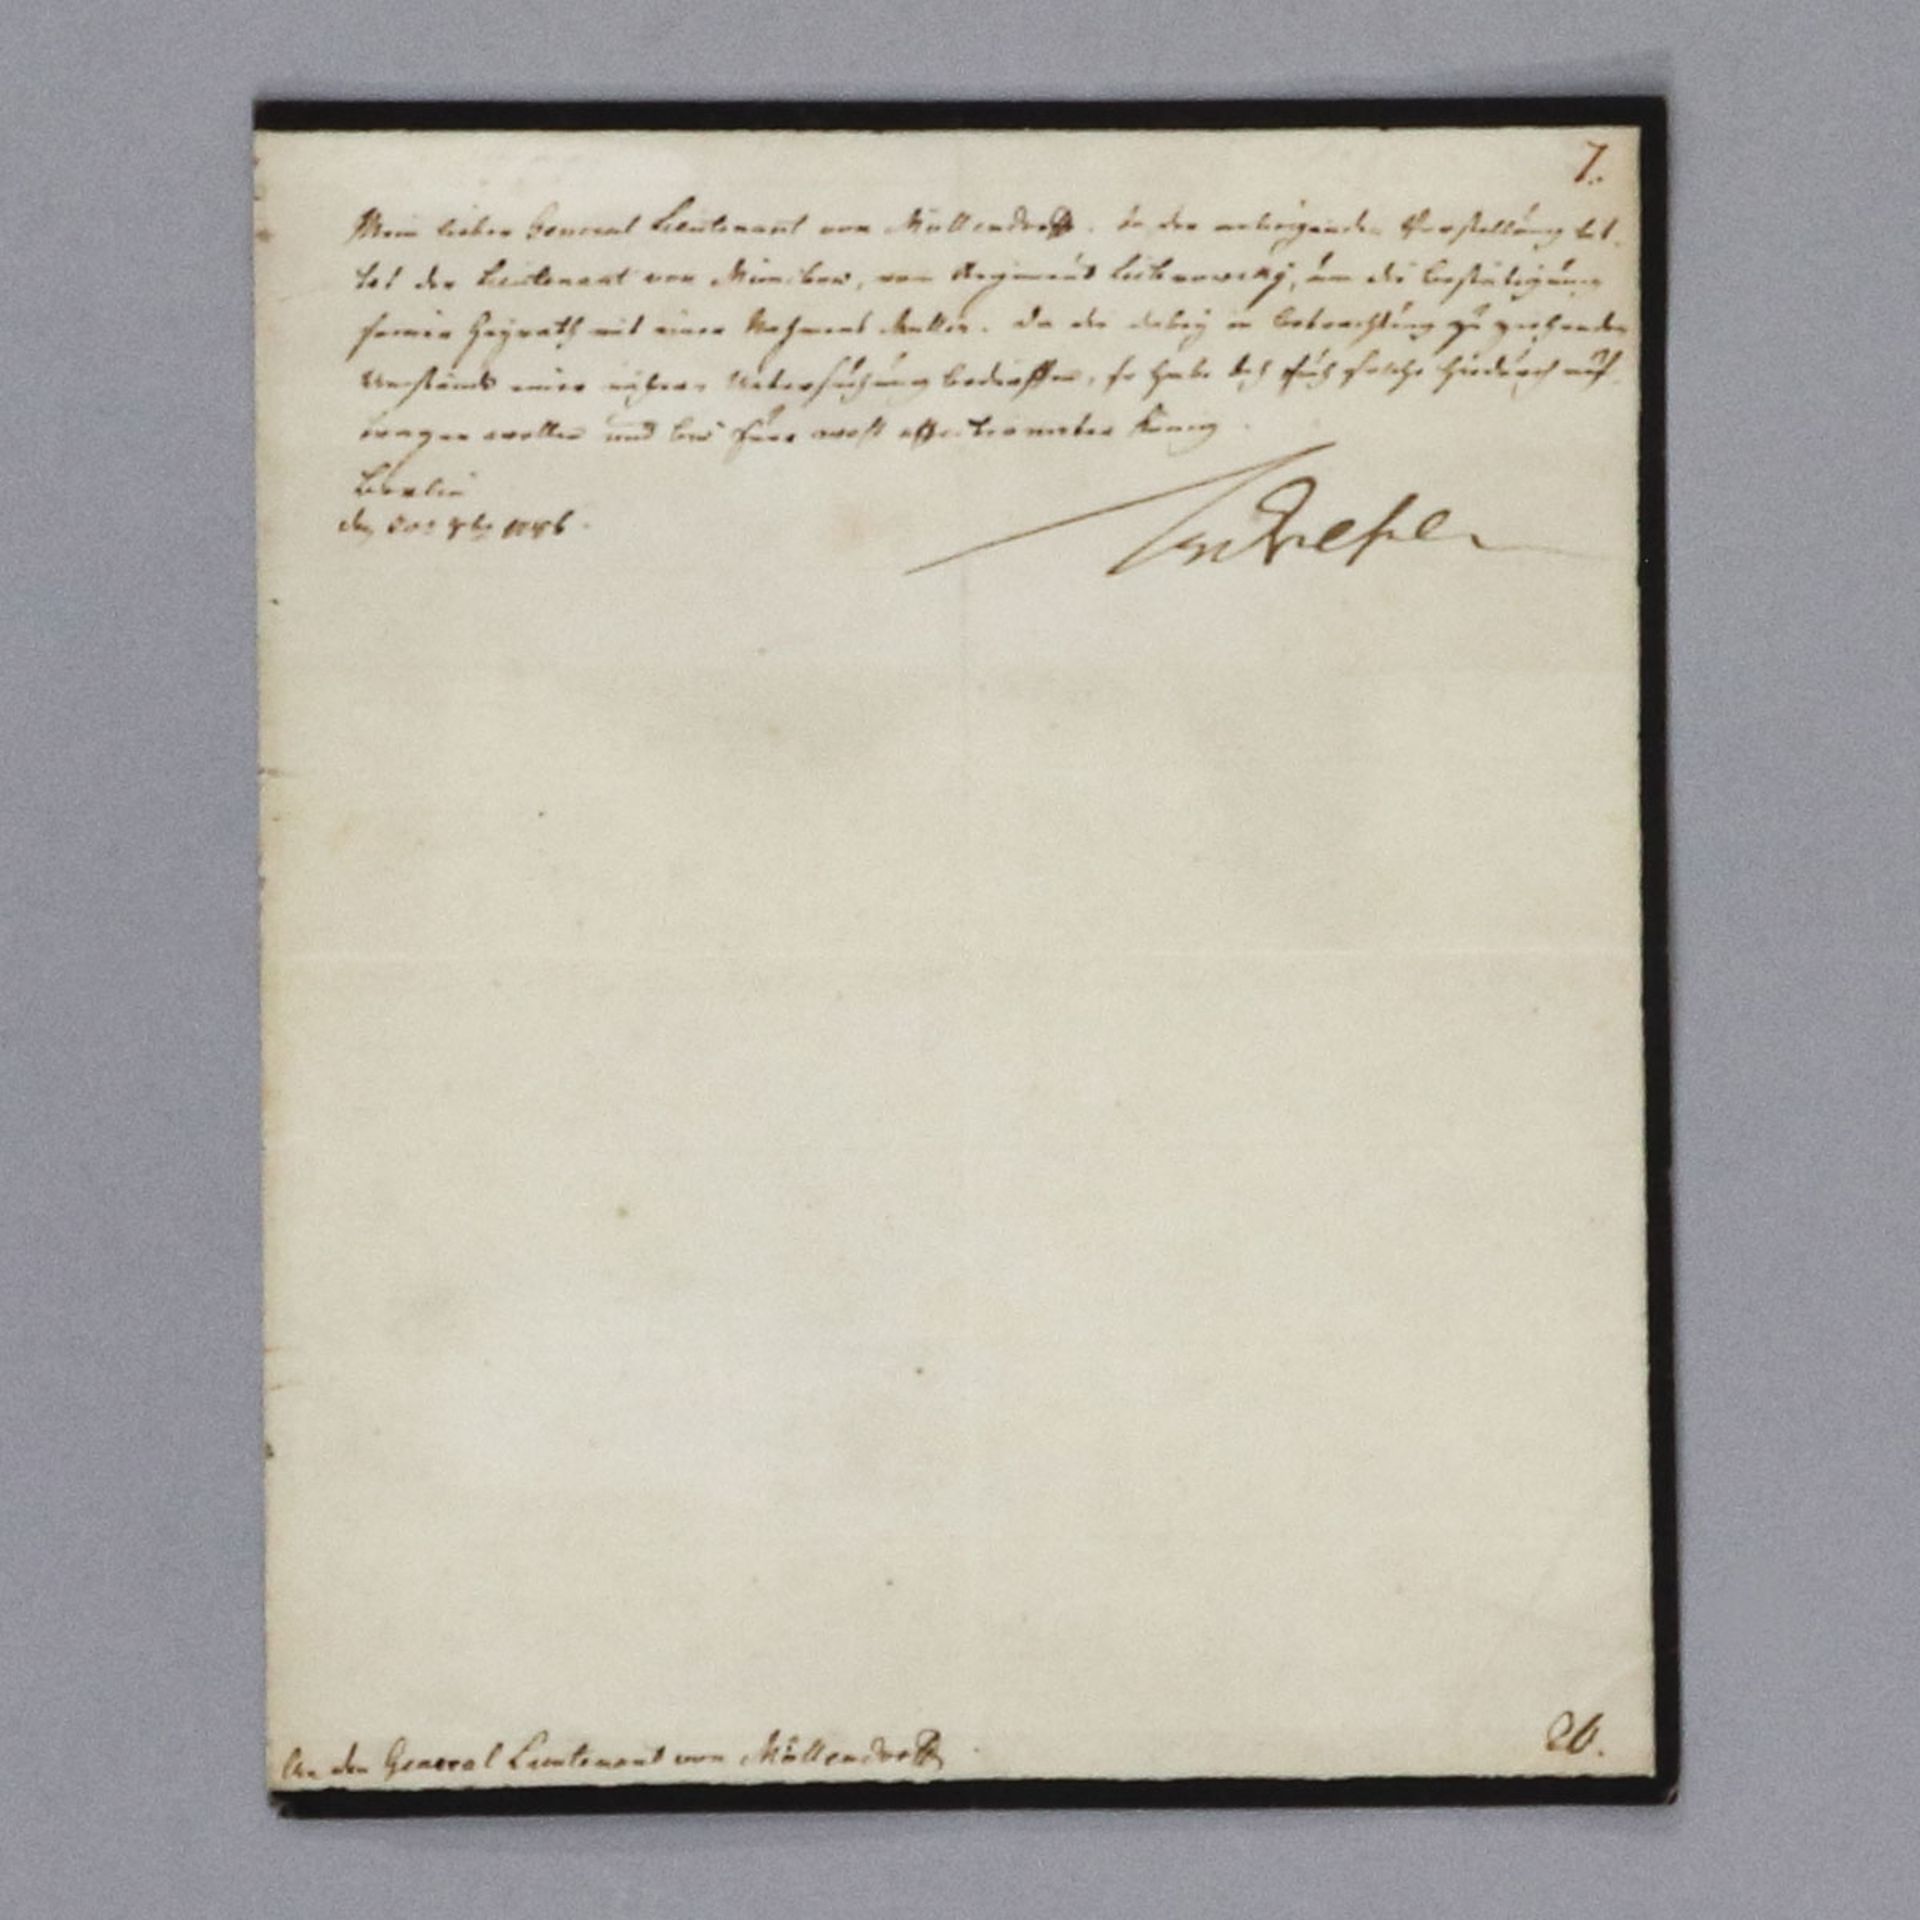 7.
Mein lieber General Lieutenant von Möllendorff. In der anliegenden Vorstellung bit-
tet der Lieutenant von, vom Regiment Lichnowsky, um die Bestätigung
seiner Heyrath mit einer Nahmens Müller. Da die dabey in Betrachtung zu ziehenden
Umstände einer nähern Untersuchung bedürffen, so habe Ich Euch solche hiedurch auf-
tragen wollen und bin Euer affectionirter König.
Berlin
den 1786.
An den General Lieutenant von Möllendorff
20.